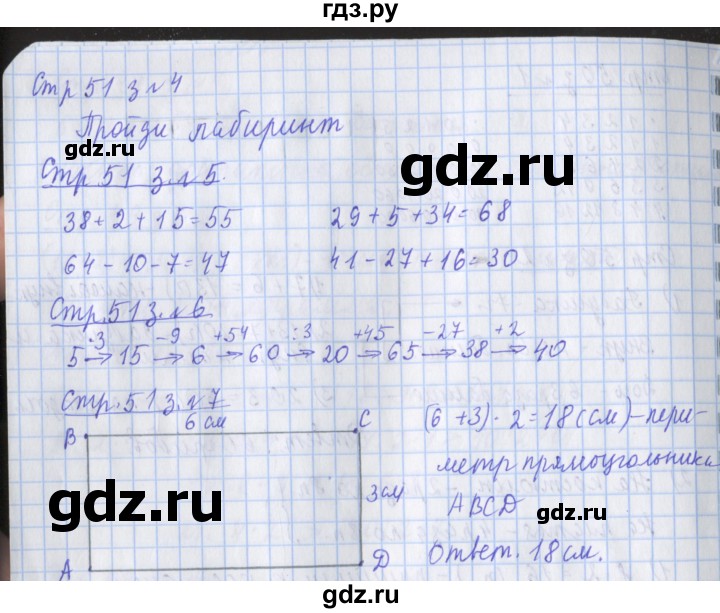 гдз.ру
Стр 51 з №4
Пройди лабиринт
gdz.ru
gdz.ru
Стр 51 з. №5.
38 + 2 + 15 = 55
29 + 5 + 34 = 68
64 - 10 - 7 = 47
41 - 27 + 16 = 30
gdz.ru
gdz.ru
Стр. 51 з. №6
5 →(·3) 15 →(-9) 6 →(+54) 60 →(:3) 20 →(+45) 65 →(-27) 38 →(+2) 40
Стр. 51 з. №7
6 см
B C
3 см
A D
(6 + 3) · 2 = 18 (см) – пери-
метр прямоугольника
ABCD
Ответ. 18 см.
gdz.ru
gdz.ru
gdz.ru